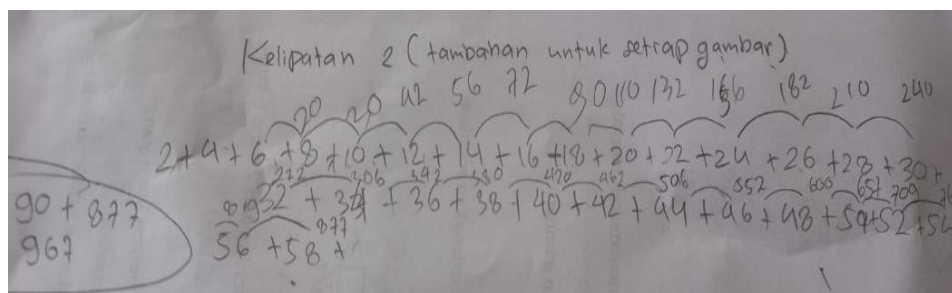 Kelipatan 2 (tambahan untuk setiap gambar)
20 20 42 56 72 90 110 132 156 182 210 240
2+4+6+8+10+12+14+16+18+20+22+24+26+28+30+
272 306 342 380 420 462 506 552 600 651 709
32+34+36+38+40+42+44+46+48+50+52+54
819 877
56+58+
90+877
967